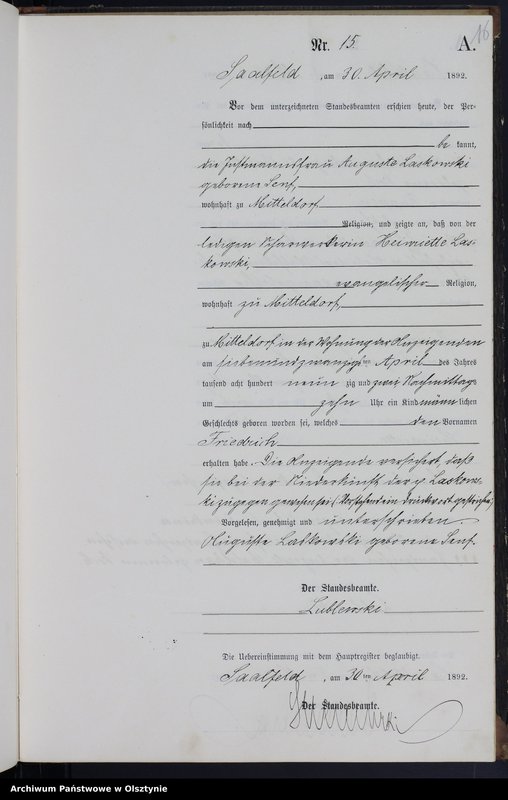 16
Nr. 15. A.
Saalfeld, am 30. April 1892.
Vor dem unterzeichneten Standesbeamten erschien heute, der Per-
sönlichkeit nach
be kannt,
die Instmannsfrau Auguste Laskowski
geborene Senf,
wohnhaft zu Mitteldorf
Religion, und zeigte an, daß von der
ledigen Scharwerkerin Heinriette Las-
kowski,
evangelischer Religion,
wohnhaft zu Mitteldorf,
zu Mitteldorf in der Wohnung der Anzeigenden
am siebenundzwanzigsten April des Jahres
tausend acht hundert neun zig und zwei Nachmittags
um zehn Uhr ein Kind männlichen
Geschlechts geboren worden sei, welches den Vornamen
Friedrich
erhalten habe. Die Anzeigende versichert, daß
sie bei der Niederkunft der p. Laskows-
ki zugegen gewesen sei. (Vorstehend ein Druckwort gestrichen)
Vorgelesen, genehmigt und unterschrieben
Auguste Laskowski geborene Senf.
Der Standesbeamte.
Lublewski
Die Uebereinstimmung mit dem Hauptregister beglaubigt.
Saalfeld, am 30ten April 1892.
Der Standesbeamte.
Archiwum Państwowe w Olsztynie